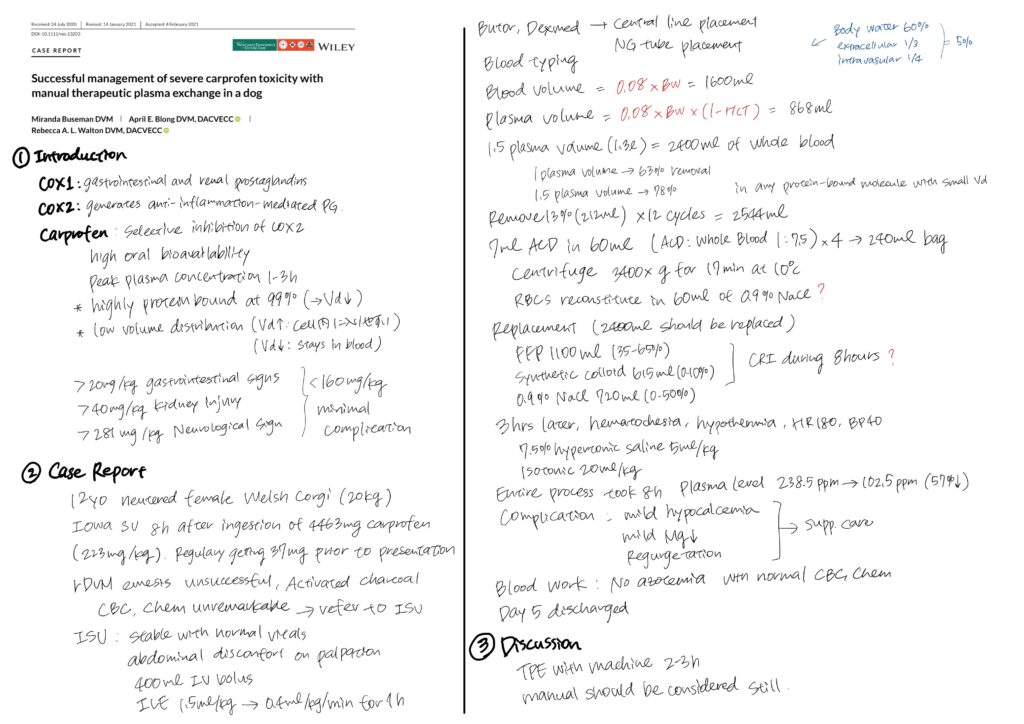 Received: 24 July 2020 | Revised: 14 January 2021 | Accepted: 4 February 2021
DOI: 10.1111/vec.13203
CASE REPORT
WILEY
Successful management of severe carprofen toxicity with
manual therapeutic plasma exchange in a dog
Miranda Buseman DVM | April E. Blong DVM, DACVECC |
Rebecca A. L. Walton DVM, DACVECC
① Introduction
COX1: gastrointestinal and renal prostaglandins
COX2: generates anti-inflammation-mediated PG.
Carprofen: Selective inhibition of COX2
high oral bioavailability
Peak plasma concentration 1-3h
* highly protein bound at 99% (→Vd↓)
* low volume distribution (Vd↑: Cell
(Vd↓: stays in blood)
>20mg/kg gastrointestinal signs
>40mg/kg Kidney Injury
>281mg/kg Neurological Sign
<160mg/kg
minimal
complication
② Case Report
12yo neutered female Welsh Corgi (20kg)
Iowa SU 8h after ingestion of 4463mg carprofen
(223mg/kg). Regulary geting 37mg prior to presentation
rDVM emesis unsuccessful, Activated charcoal
CBC, Chem unremarkable → refer to ISU
ISU: Stable with normal vitals
abdominal discomfort on palpation
400ml IV bolus
ILE 1.5ml/kg → 0.4ml/kg/min for 1h
Butor, Dexmed → Central line placement
NG tube placement
Body water 60%
extracellular 1/3
intravasular 1/4
= 5%
Blood typing
Blood volume = 0.08 × BW = 1600ml
Plasma volume = 0.08 × BW × (1-HCT) = 868ml
1.5 plasma volume (1.3L) = 2400ml of whole blood
1 plasma volume → 63% removal
1.5 plasma volume → 78%
in any protein-bound molecule with small Vd
Remove 13% (212ml) × 12 cycles = 2544ml
7ml ACD in 60ml (ACD: Whole Blood 1:7.5) × 4 → 240ml bag
Centrifuge 3400× g for 17min at 10°C
RBCS reconstitute in 60ml of 0.9% NaCl ?
Replacement (2400ml should be replaced)
FFP 1100ml (35-65%)
Synthetic colloid 615ml (0-10%)
0.9% NaCl 720ml (0-50%)
CRI during 8hours ?
3hrs later, hematochesia, hypothermia, HR180, BP40
7.5% hypertonic saline 5ml/kg
Isotonic 20ml/kg
Entire process took 8h Plasma level 238.5ppm → 102.5ppm (57%↓)
Complication: mild hypocalcemia
mild Mg↓
Regurgetation
→ supp. care
Blood work: No azotemia with normal CBC, Chem
Day 5 discharged
③ Discussion
TPE with machine 2-3h
manual should be considered still.